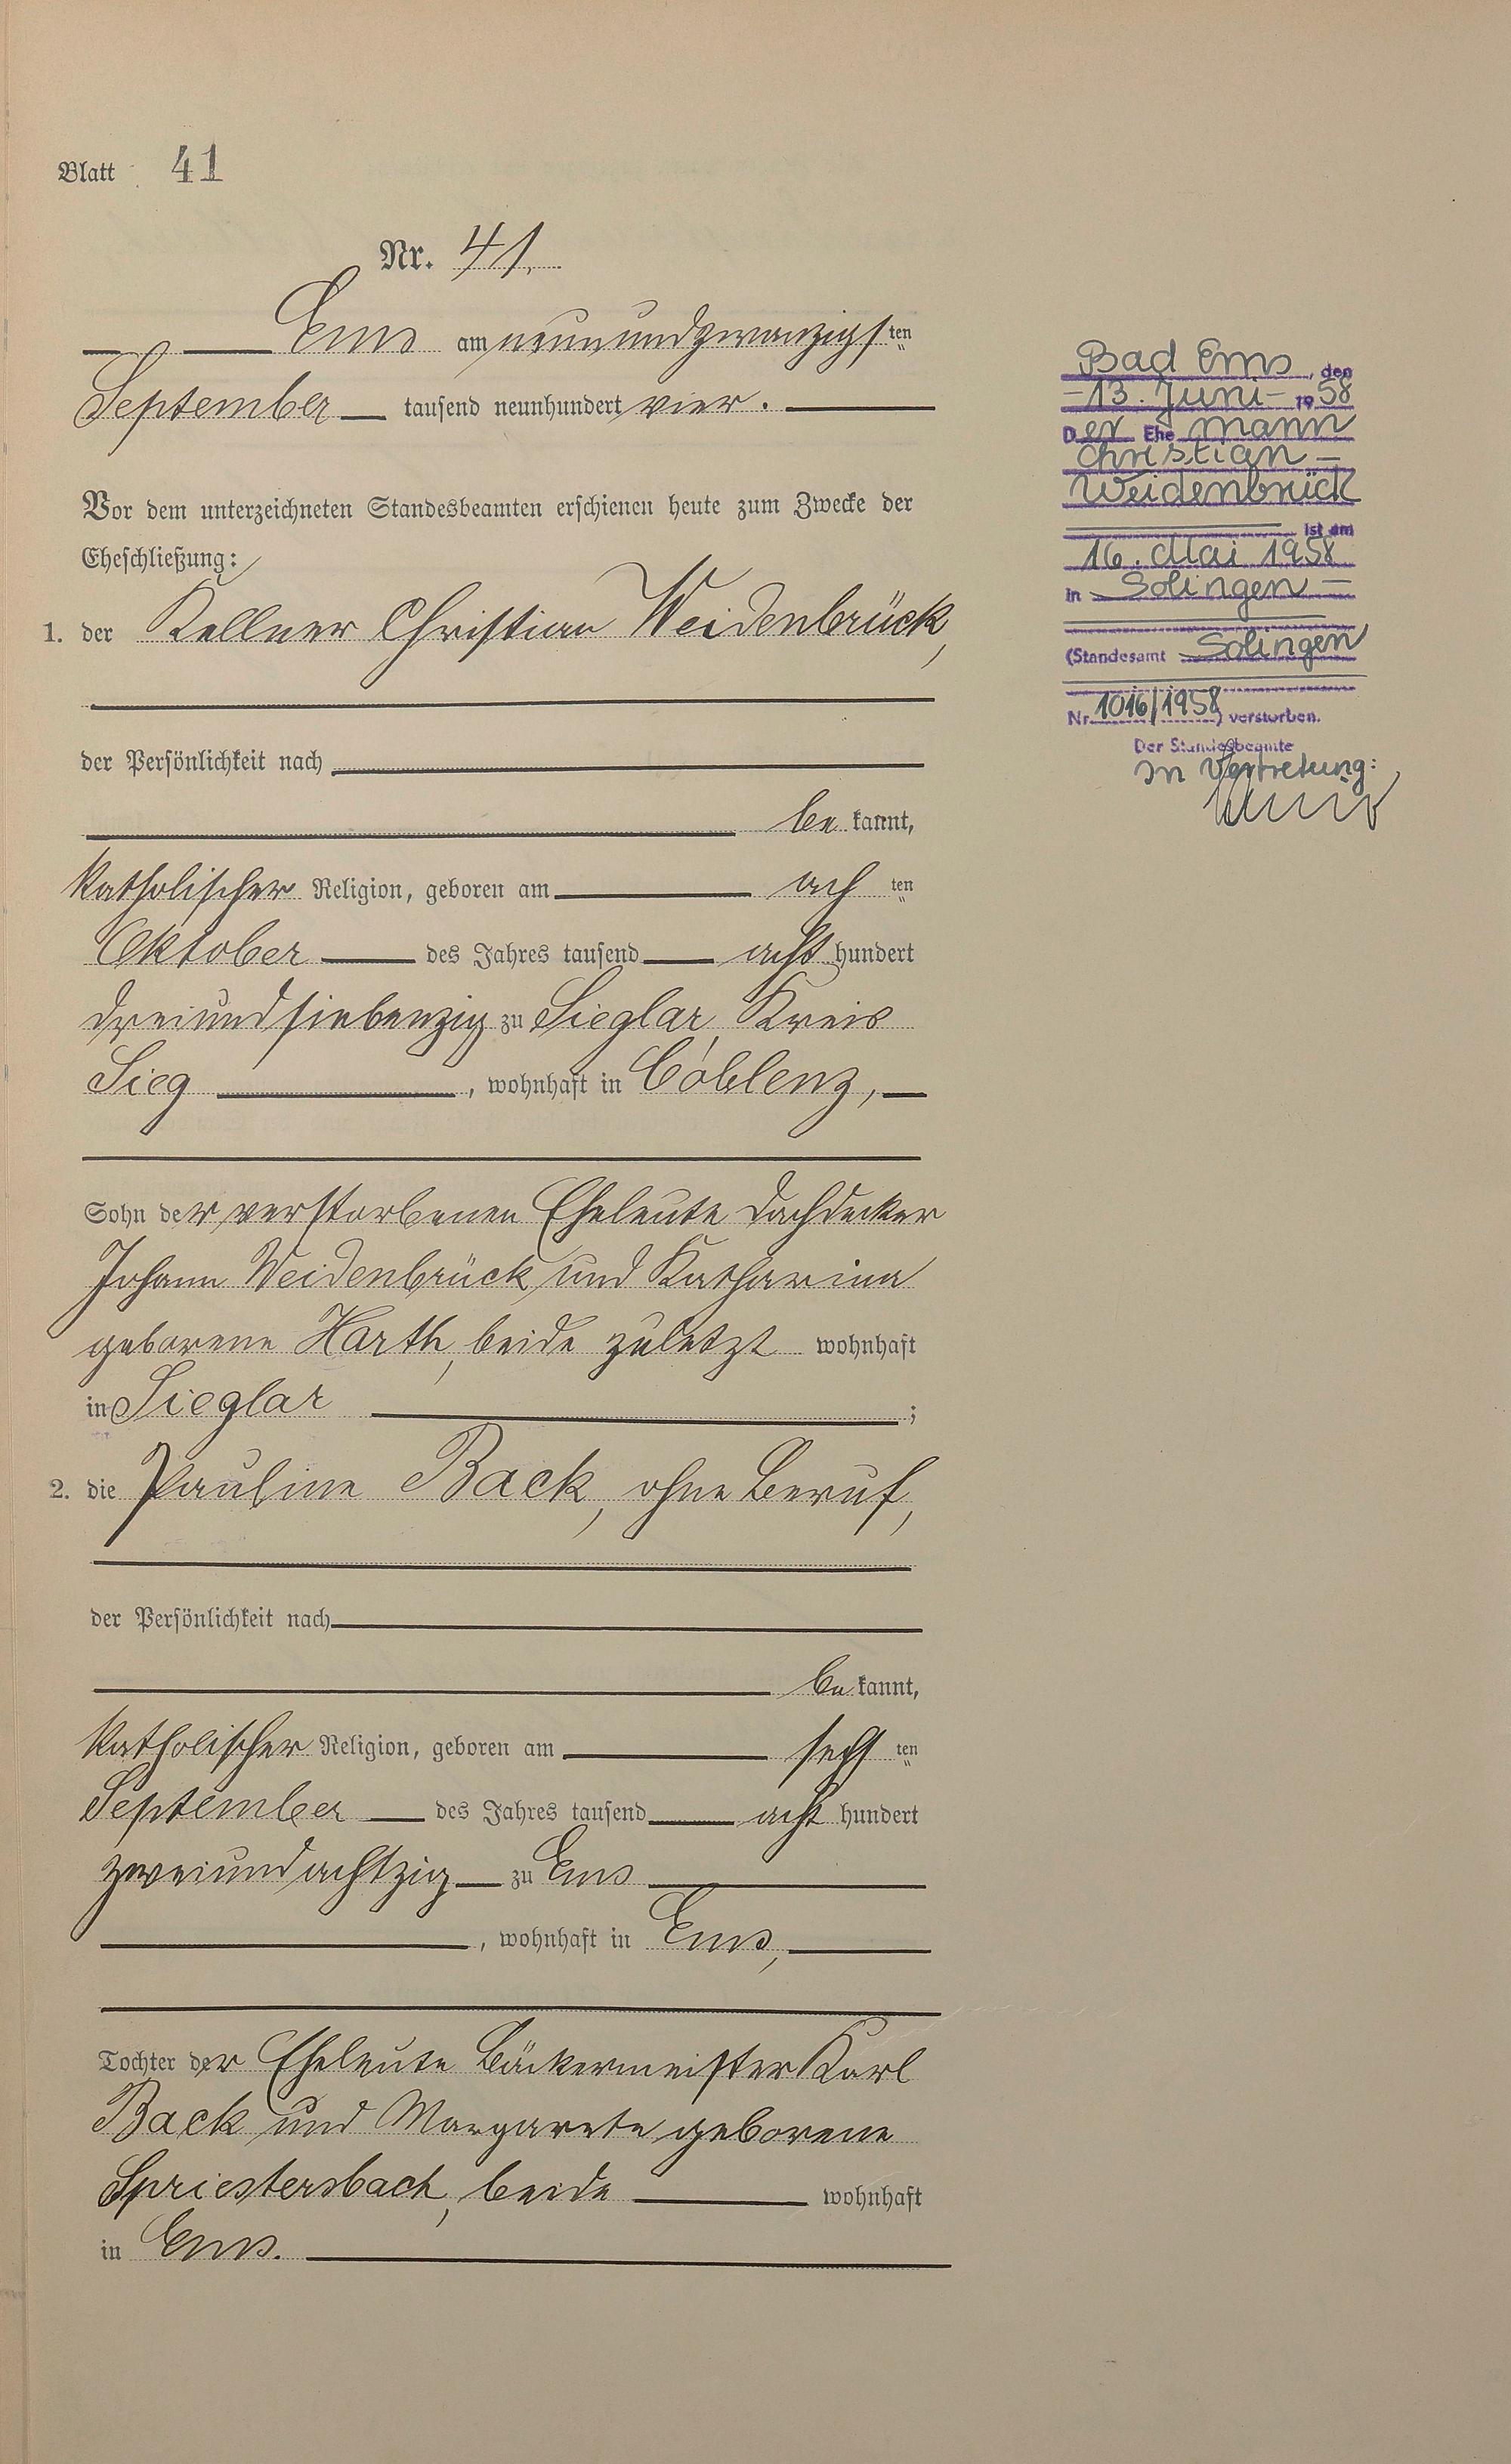 Blatt 41
Nr. 41.
Ems am neunundzwanzigsten
September tausend neunhundert vier.
Vor dem unterzeichneten Standesbeamten erschienen heute zum Zwecke der
Eheschließung:
1. der Kellner Christian Weidenbrück,
der Persönlichkeit nach
be kannt,
katholischer Religion, geboren am ach ten
Oktober des Jahres tausend acht hundert
dreiundsiebenzig zu Sieglar, Kreis
Sieg, wohnhaft in Coblenz,
Sohn der verstorbenen Eheleute Dachdecker
Johann Weidenbrück und Katharina
geborene Harth, beide zuletzt wohnhaft
in Sieglar ;
2. die Pauline Back, ohne Beruf,
der Persönlichkeit nach
be kannt,
katholischer Religion, geboren am sechs ten
September des Jahres tausend acht hundert
zweiundachtzig zu Ems
, wohnhaft in Ems,
Tochter der Eheleute Bäckermeister Karl
Back und Margarete geborene
Spriestersbach, beide wohnhaft
in Ems.
Bad Ems, den
-13. Juni- 1958
Der Ehemann
Christian -
Weidenbrück
ist am
16. Mai 1958
in Solingen -
(Standesamt Solingen
Nr. 1016/1958) verstorben.
Der Standesbeamte
In Vertretung: